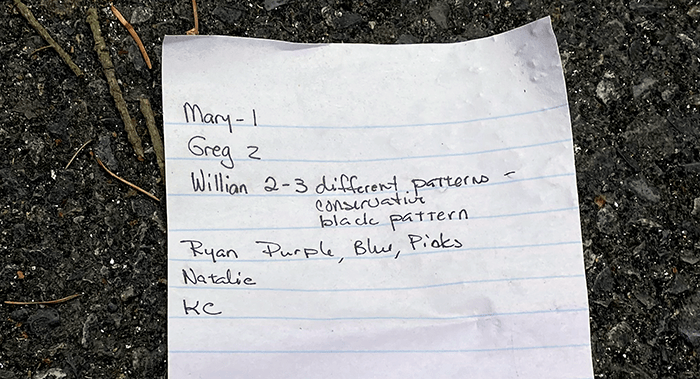 Mary-1
Greg 2
Willian 2-3 different patterns -
conservative
black pattern
Ryan Purple, Blue, Pinks
Natalie
KC